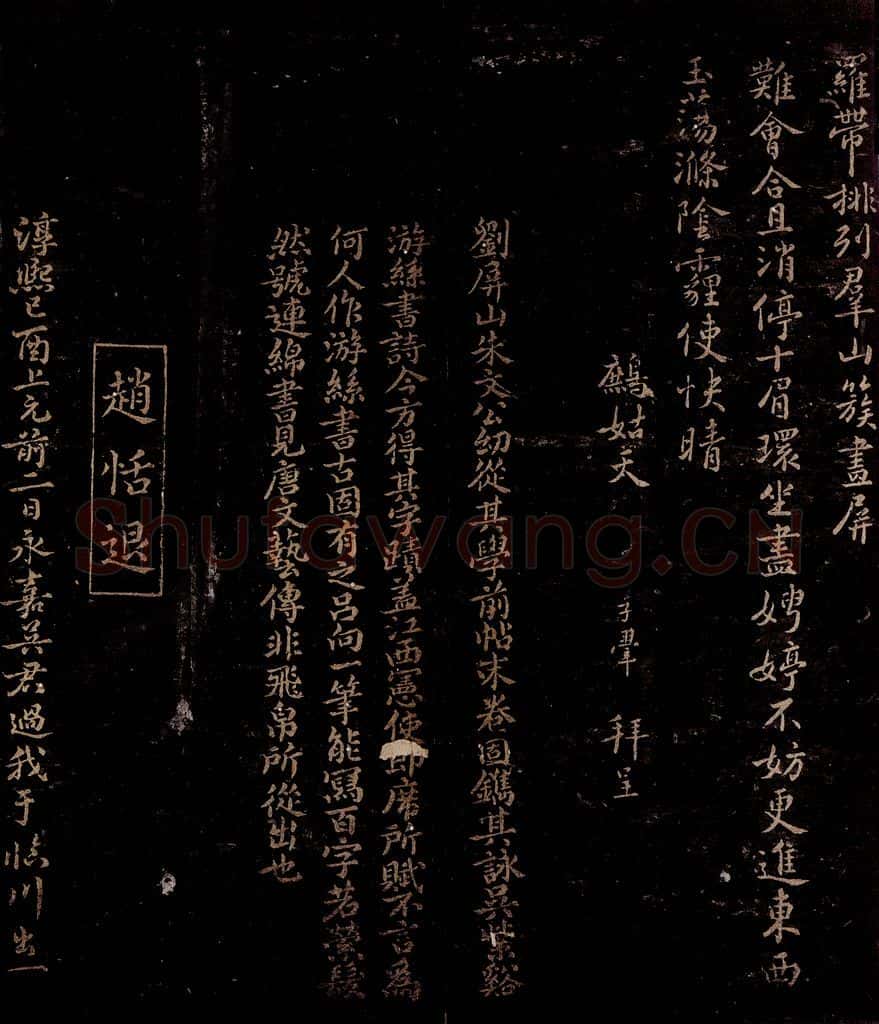 羅帶排列羣山簇畫屏
難會合且消停十眉環坐盡娉婷不妨更進東西
玉蕩滌陰霾使快晴
鷓姑天 子翬 拜呈
劉屏山朱文公幼從其學前帖末卷固鐫其詠吳紫谿
游絲書詩今方得其字蹟蓋江西憲使即席所賦不言為
何人作游絲書古固有之呂向一筆能寫百字若縈髮
然號連綿書見唐文藝傳非飛帛所從出也
趙恬退
淳熙己酉上元前二日永嘉吳君過我于臨川出一
Shufawang.CN